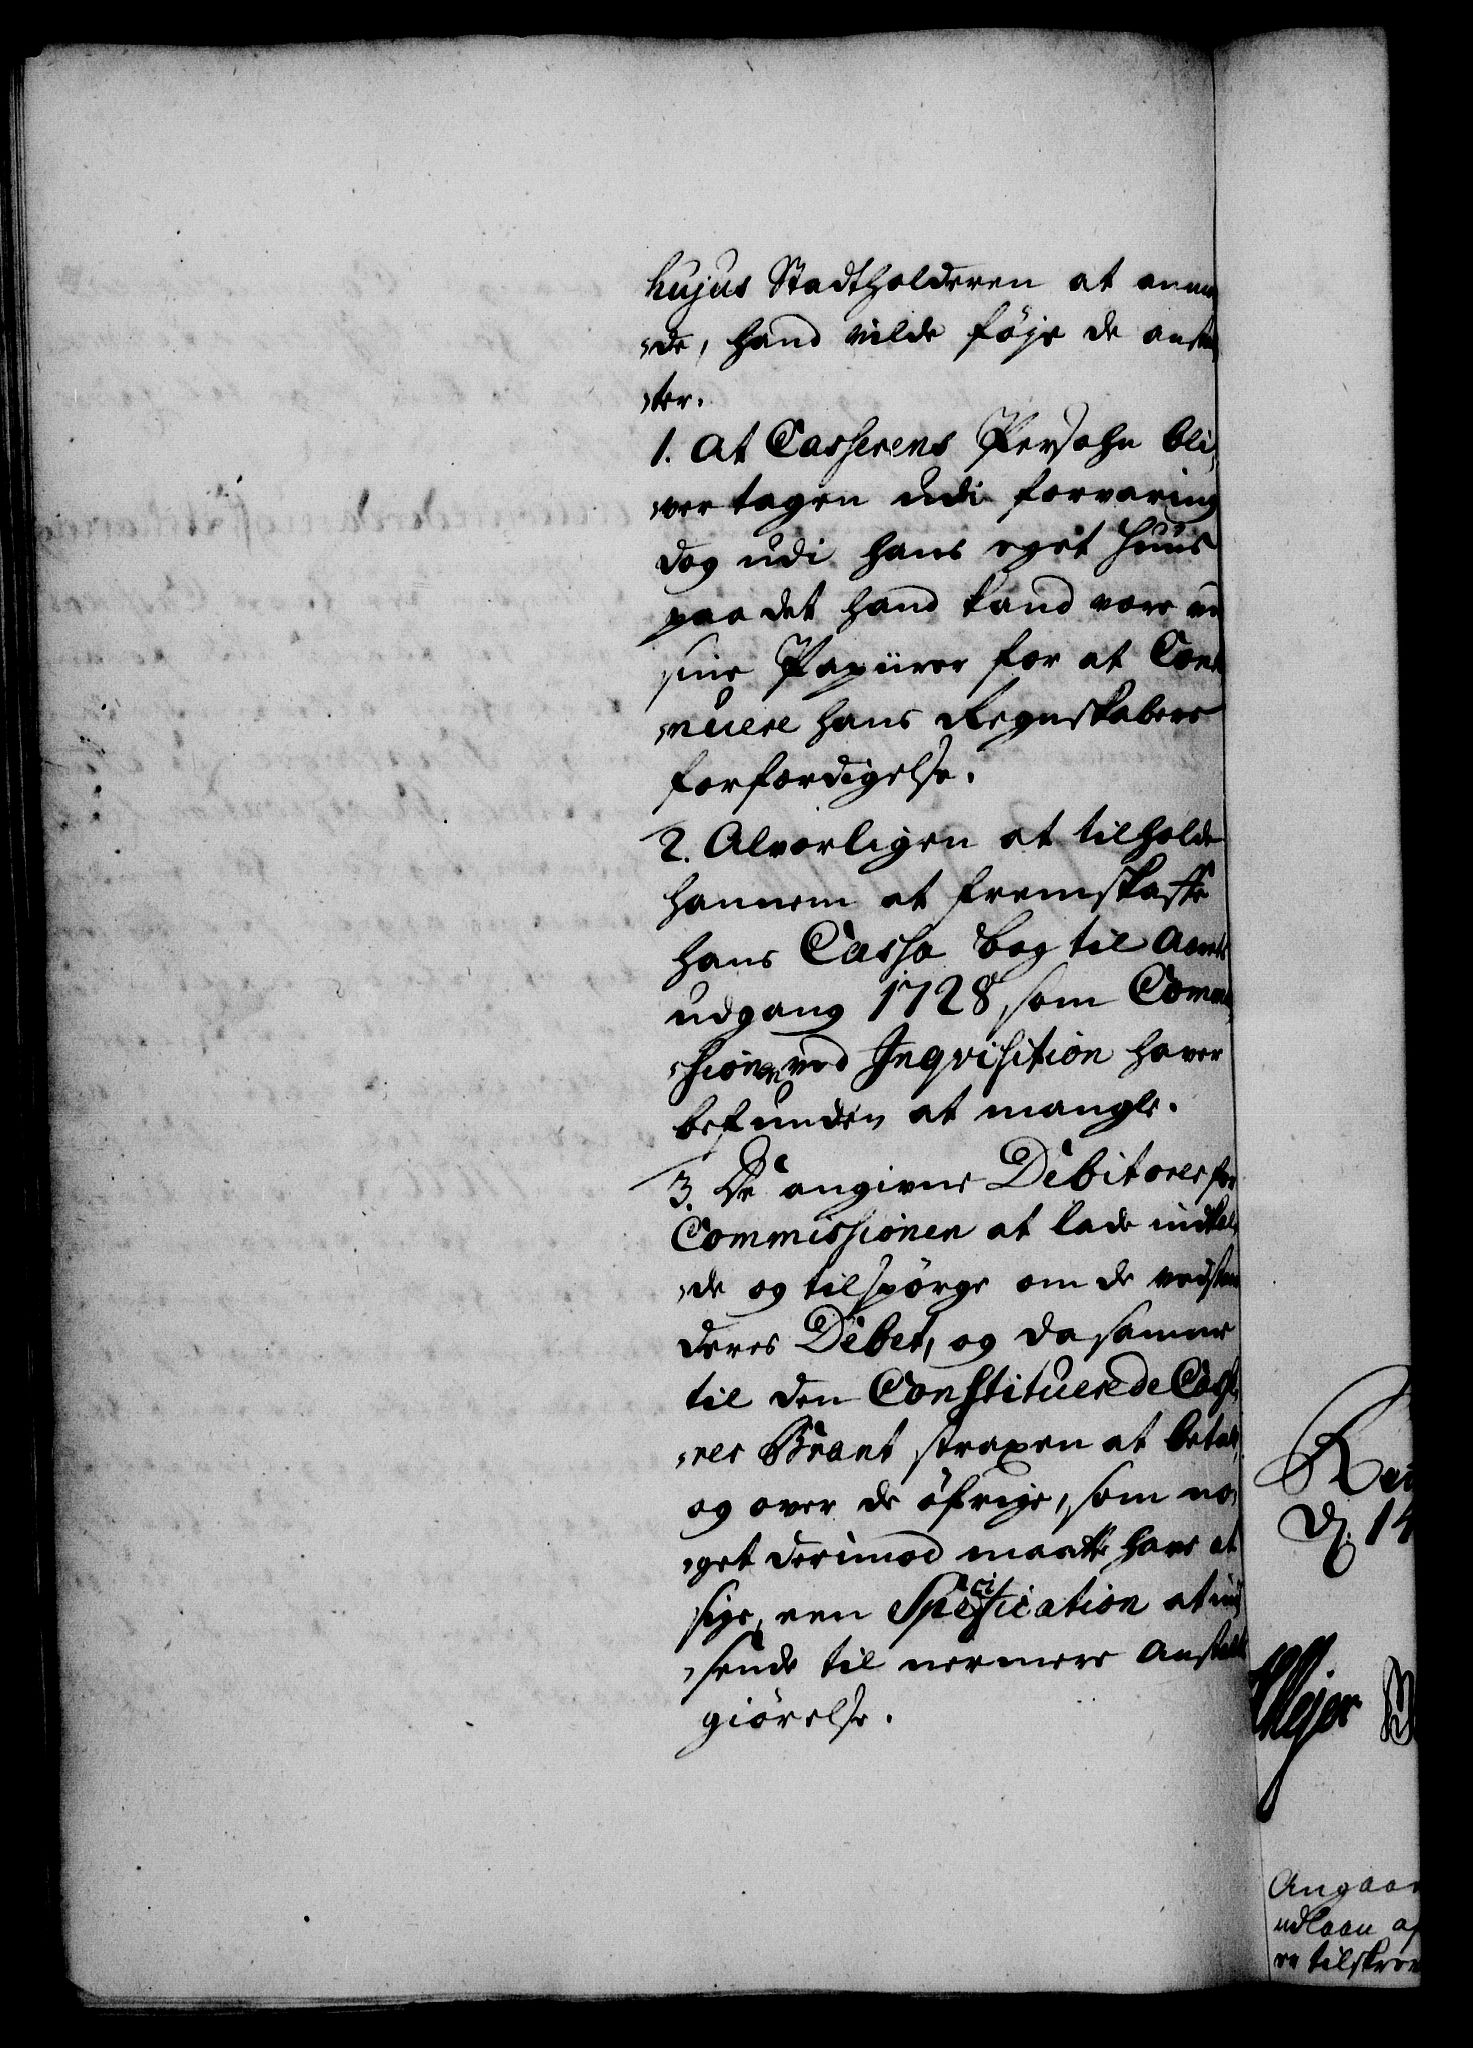 hujus Stadtholderen at anmo
de, hand vilde føje de anstal
ter.
1. At Casserens Persohn bli
ver tagen udi forvaring
dog udi hans eget Huus
paa det hand kand være ved
sine Papiirer for at Conti
nuere hans Regnskabers
forfærdigelse.
2. Alvorligen at tilholde
hannem at fremskaffe
hans Cassa bog til Aarets
udgang 1728, som Commis
sionen ved Inqvisition haver
befunden at mangle.
3. De angivne Debitores for
Commissionen at lade indkal
de og tilspørge om de vedstaar
deres Debet, og da samme
til den Constituerede Cass
rer Brant straxen at betale,
og over de øfrige, som no
get derimod maatte have at
sige, een Specification at ind
sende til nermere Anstalts
giørelse.
D. 14
Angaar
udlaan af
tilskrev